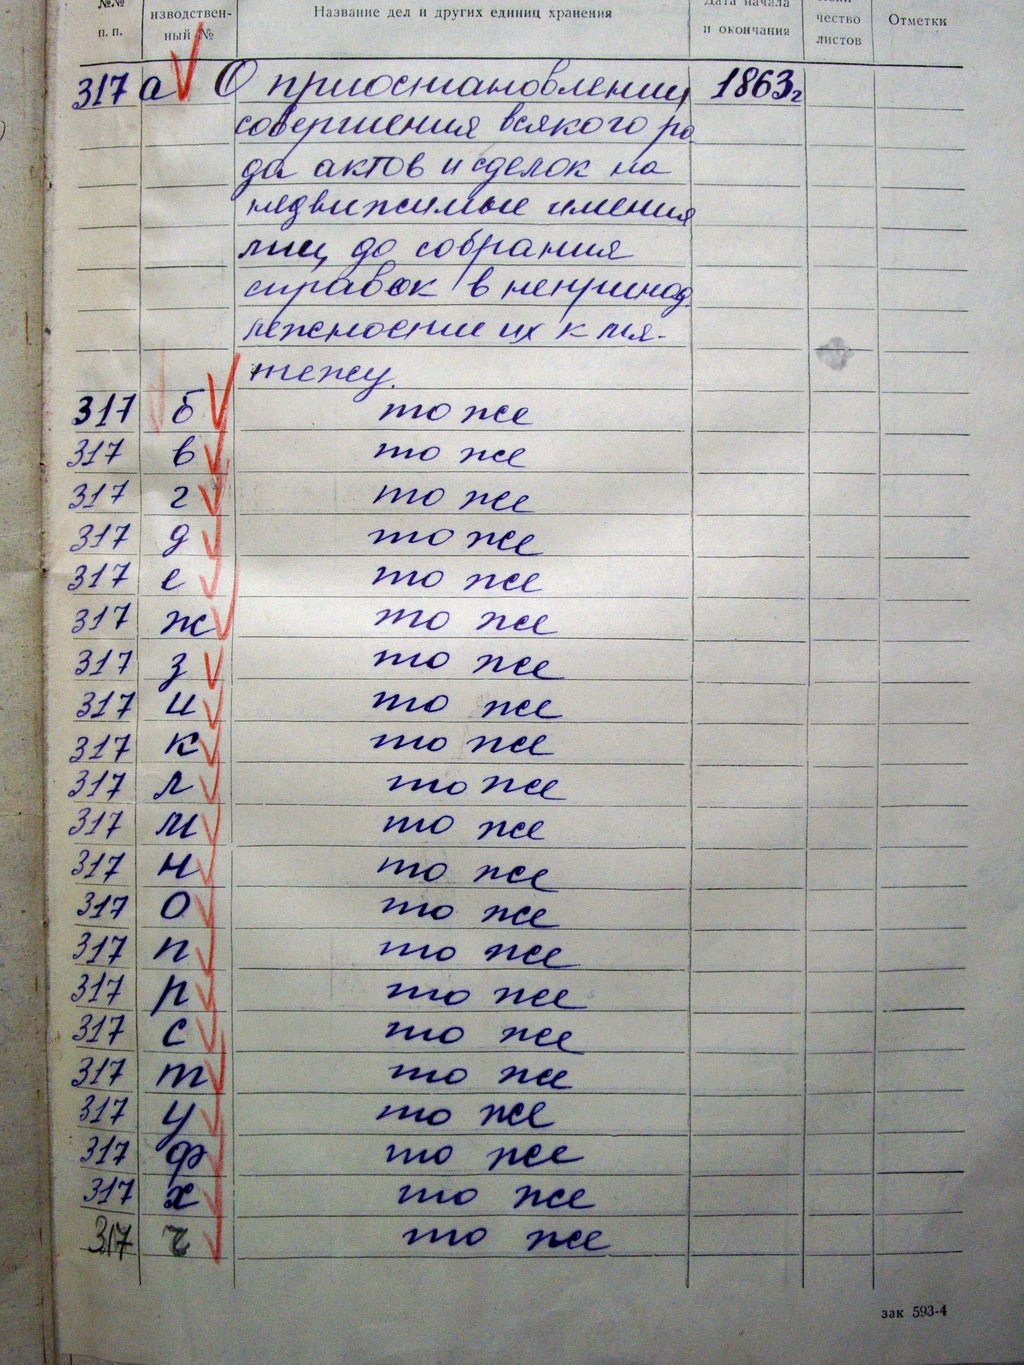 №№
п. п.
изводствен-
ный №
Название дел и других единиц хранения
Дата начала
и окончания
чество
листов
Отметки
317 а О приостановлении 1863г
совершения всякого ро
да актов и сделок на
недвижимые имения
лиц до собрания
справок в непринад
лежности их к мя-
тежу.
317 б то же
317 в то же
317 г то же
317 д то же
317 е то же
317 ж то же
317 з то же
317 и то же
317 к то же
317 л то же
317 м то же
317 н то же
317 о то же
317 п то же
317 р то же
317 с то же
317 т то же
317 у то же
317 ф то же
317 х то же
317 ч то же
зак 593-4